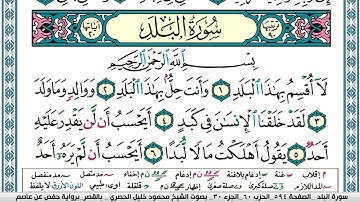 سُورَةُ البَلَدِ
بِسْمِ اللَّهِ الرَّحْمَٰنِ الرَّحِيمِ
لَا أُقْسِمُ بِهَٰذَا الْبَلَدِ ١ وَأَنتَ حِلٌّ بِهَٰذَا الْبَلَدِ ٢ وَوَالِدٍ وَمَا وَلَدَ
٣ لَقَدْ خَلَقْنَا الْإِنسَانَ فِي كَبَدٍ ٤ أَيَحْسَبُ أَن لَّن يَقْدِرَ عَلَيْهِ
أَحَدٌ ٥ يَقُولُ أَهْلَكْتُ مَالًا لُّبَدًا ٦ أَيَحْسَبُ أَن لَّمْ يَرَهُ أَحَدٌ
سورة البلد الصفحة ٥٩٤ الحزب ٦٠ الجزء ٣٠ بصوت الشيخ محمود خليل الحصري - بالقصر برواية حفص عن عاصم